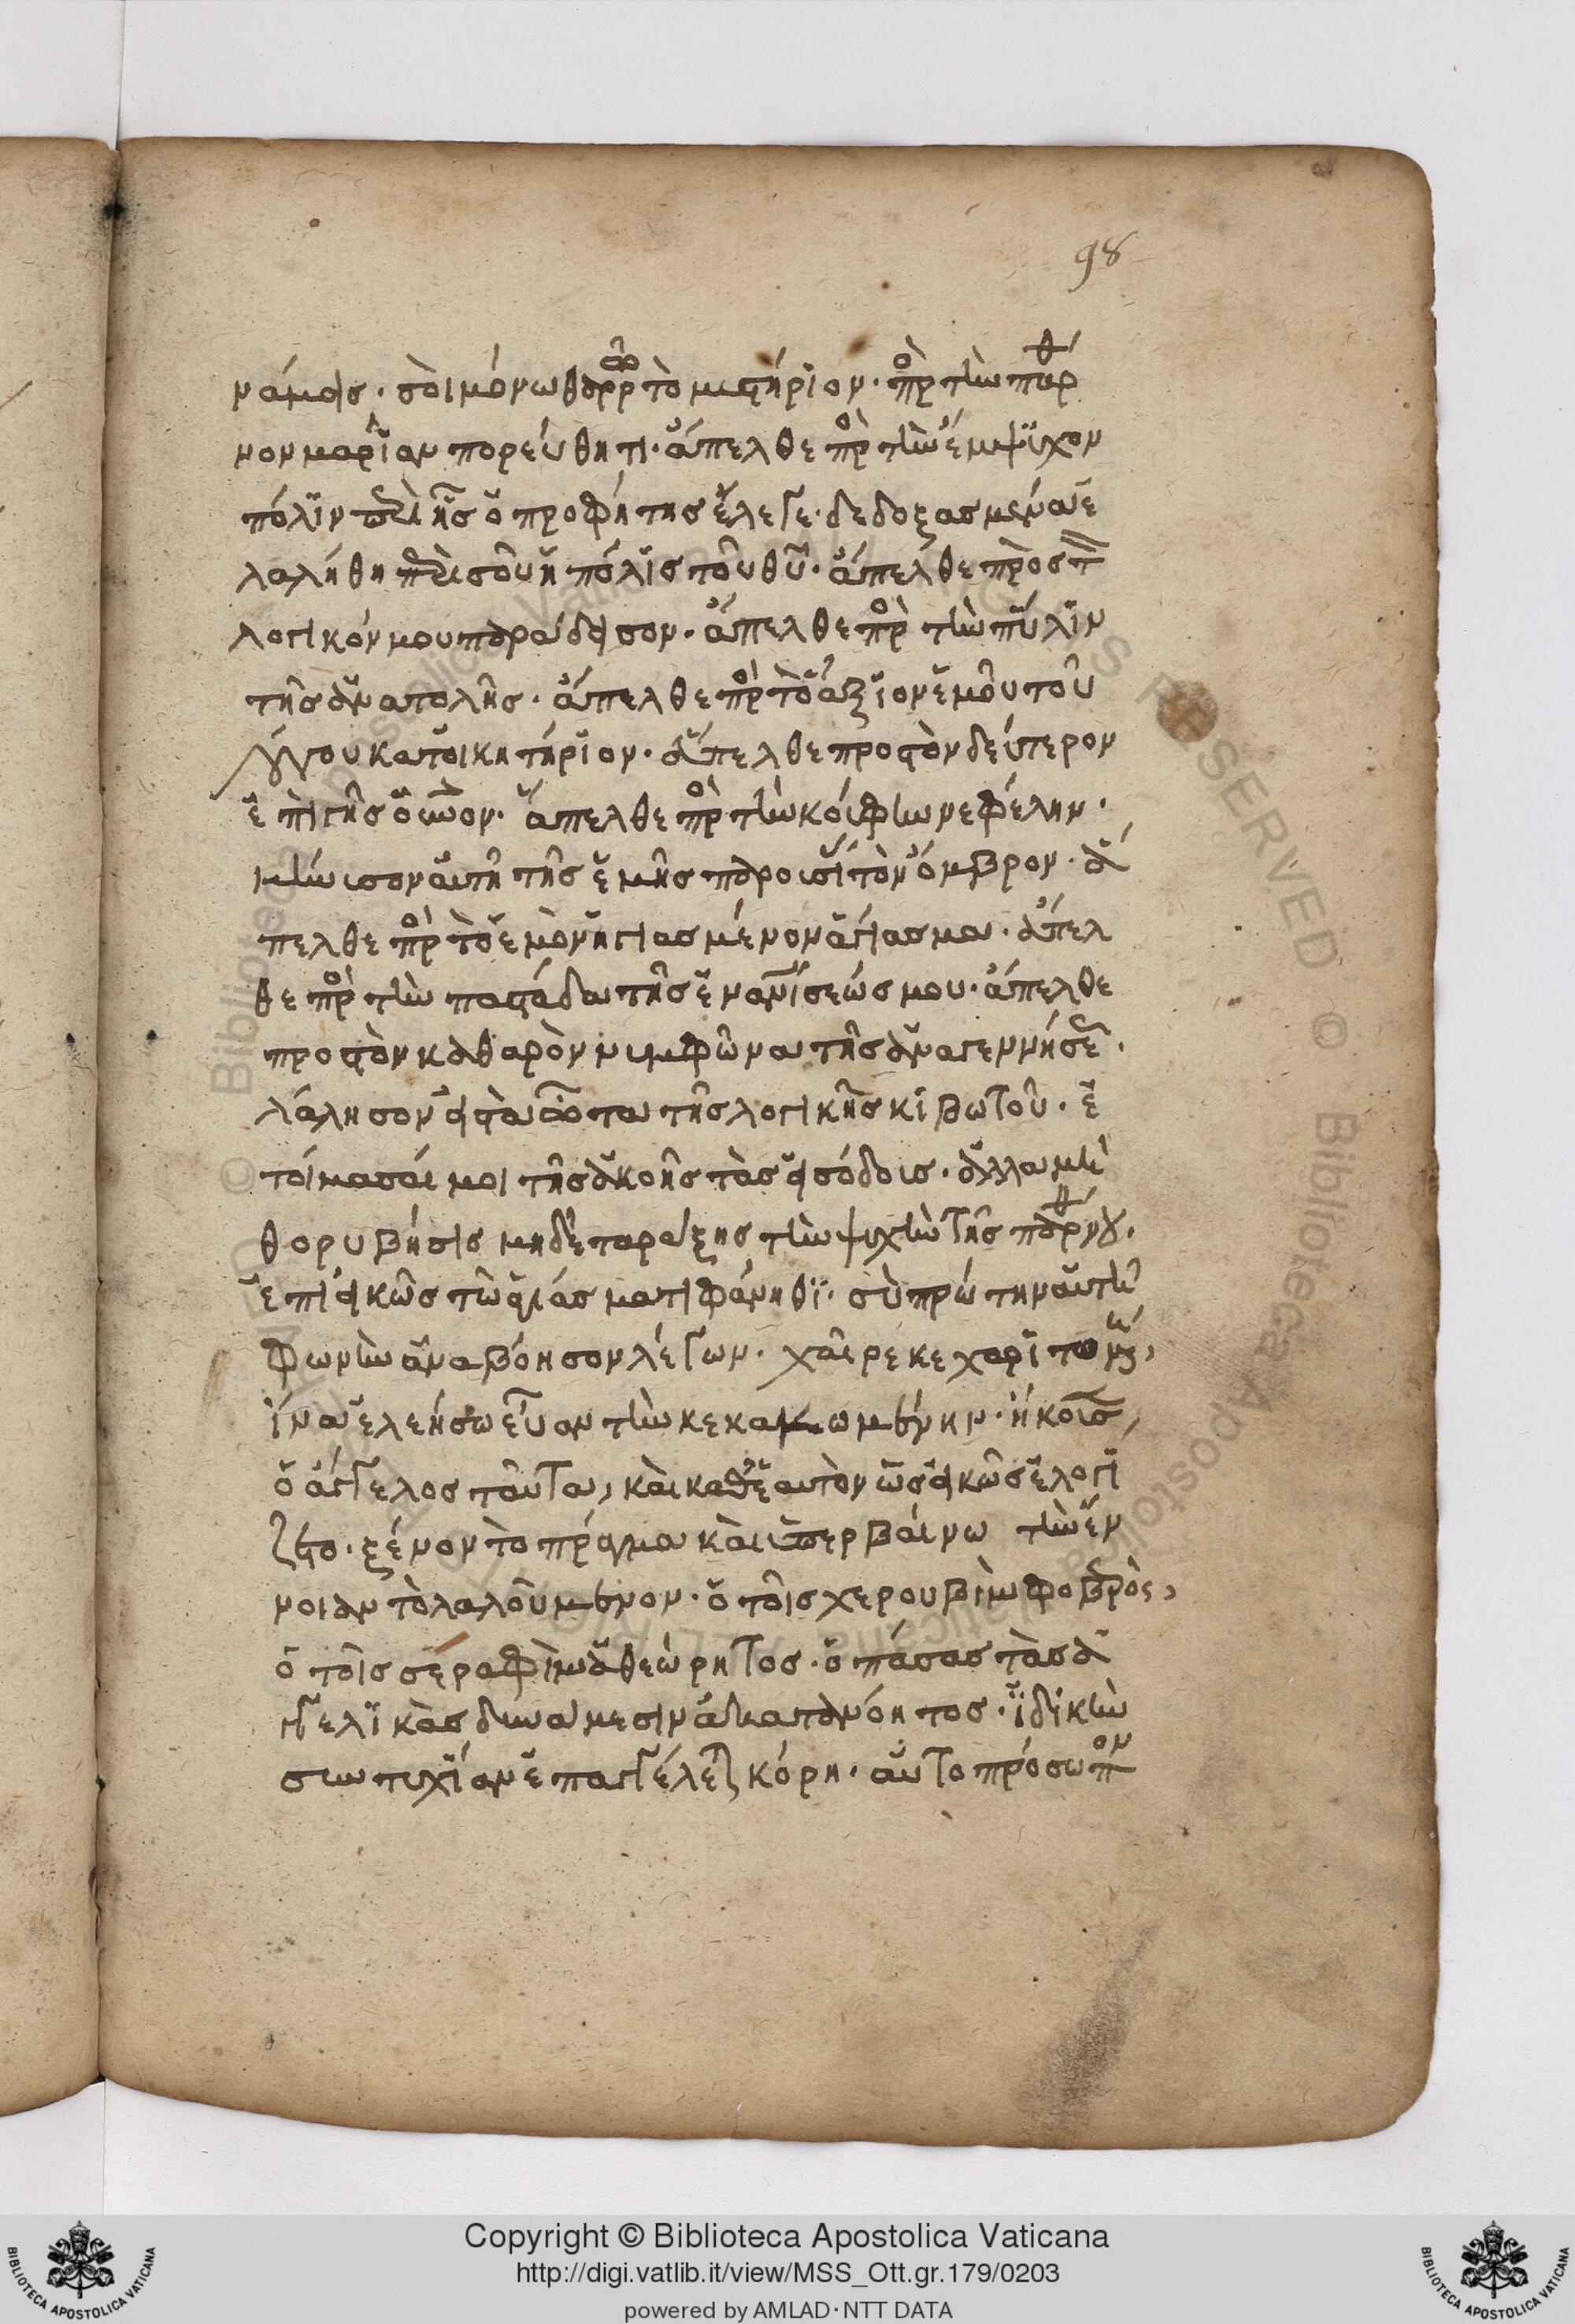 98
νάμεις. σοὶ μόνω θαρρῶ τὸ μυστήριον. πρὸς τὴν παρθέ
νον μαρίαν πορεύθητι. ἄπελθε πρὸς τὴν ἔμψυχον
πόλιν περὶ ἧς ὁ προφήτης ἔλεγε. δεδοξασμένα ἐ
λαλήθη περὶ σοῦ ἡ πόλις τοῦ θῦ. ἄπελθε πρὸς τὸν
λογικόν μου παράδεισον. ἄπελθε πρὸς τὴν πύλην
τῆς ἀνατολῆς. ἄπελθε πρὸς τὸ ἄξιον ἐμοῦ τοῦ
λόγου κατοικητήριον. ἄπελθε προς τὸν δεύτερον
ἐπὶ γῆς οὐνον. ἄπελθε πρὸς τὴν κούφην νεφέλην.
μήνυσον αὐτῆ τῆς ἐμῆς παρουσίας τὸν ὄμβρον. ἄ
πελθε πρὸς τὸ ἐμὸν ἡγιασμένον ἁγίασμα. ἄπελ
θε πρὸς τὴν παστάδα τῆς ἐνανθρωπήσεώς μου. ἄπελθε
προς τὸν καθαρὸν νυμφῶνα τῆς ἀναγεννήσεως.
λάλησον εἰς τὰ ὦτα τῆς λογικῆς κιβωτοῦ. ἑ
τοίμασαί μοι τῆς ἀκοῆς τὰς εἰσόδους. ἀλλὰ μὴ
θορυβήσις μηδὲ ταράξης τὴν ψυχὴν τῆς παρθένου.
ἐπιεικῶς τῶ ἁγιάσματι φάνηθι. σὺ πρώτην αὐτῆ
φωνὴν ἀναβόησον λέγων. χαῖρε κεχαριτωμένη,
ἵνα ἐλεήσω εὔαν τὴν κεκακωμένην. ἤκουσεν
ὁ ἄγγελος ταῦτα, καὶ καθ' ἑαυτὸν ὡς εἰκὼς ἐλογί
ζετο. ξένον τὸ πράγμα καὶ ὑπερβαίνω τὴν ἔν
νοιαν τὸ λαλούμενον. ὁ τοῖς χερουβὶμ φοβερὸς,
ὁ τοῖς σεραφὶμ ἀθεώρητος. ὁ πάσας τὰς ἀ
γγελικὰς δυνάμεσιν ἀκατανόητος. ἰδικὴν
συντυχίαν ἐπαγγέλεται κόρη. αὐτοπρόσωπον
Copyright © Biblioteca Apostolica Vaticana
http://digi.vatlib.it/view/MSS_Ott.gr.179/0203
powered by AMLAD·NTT DATA